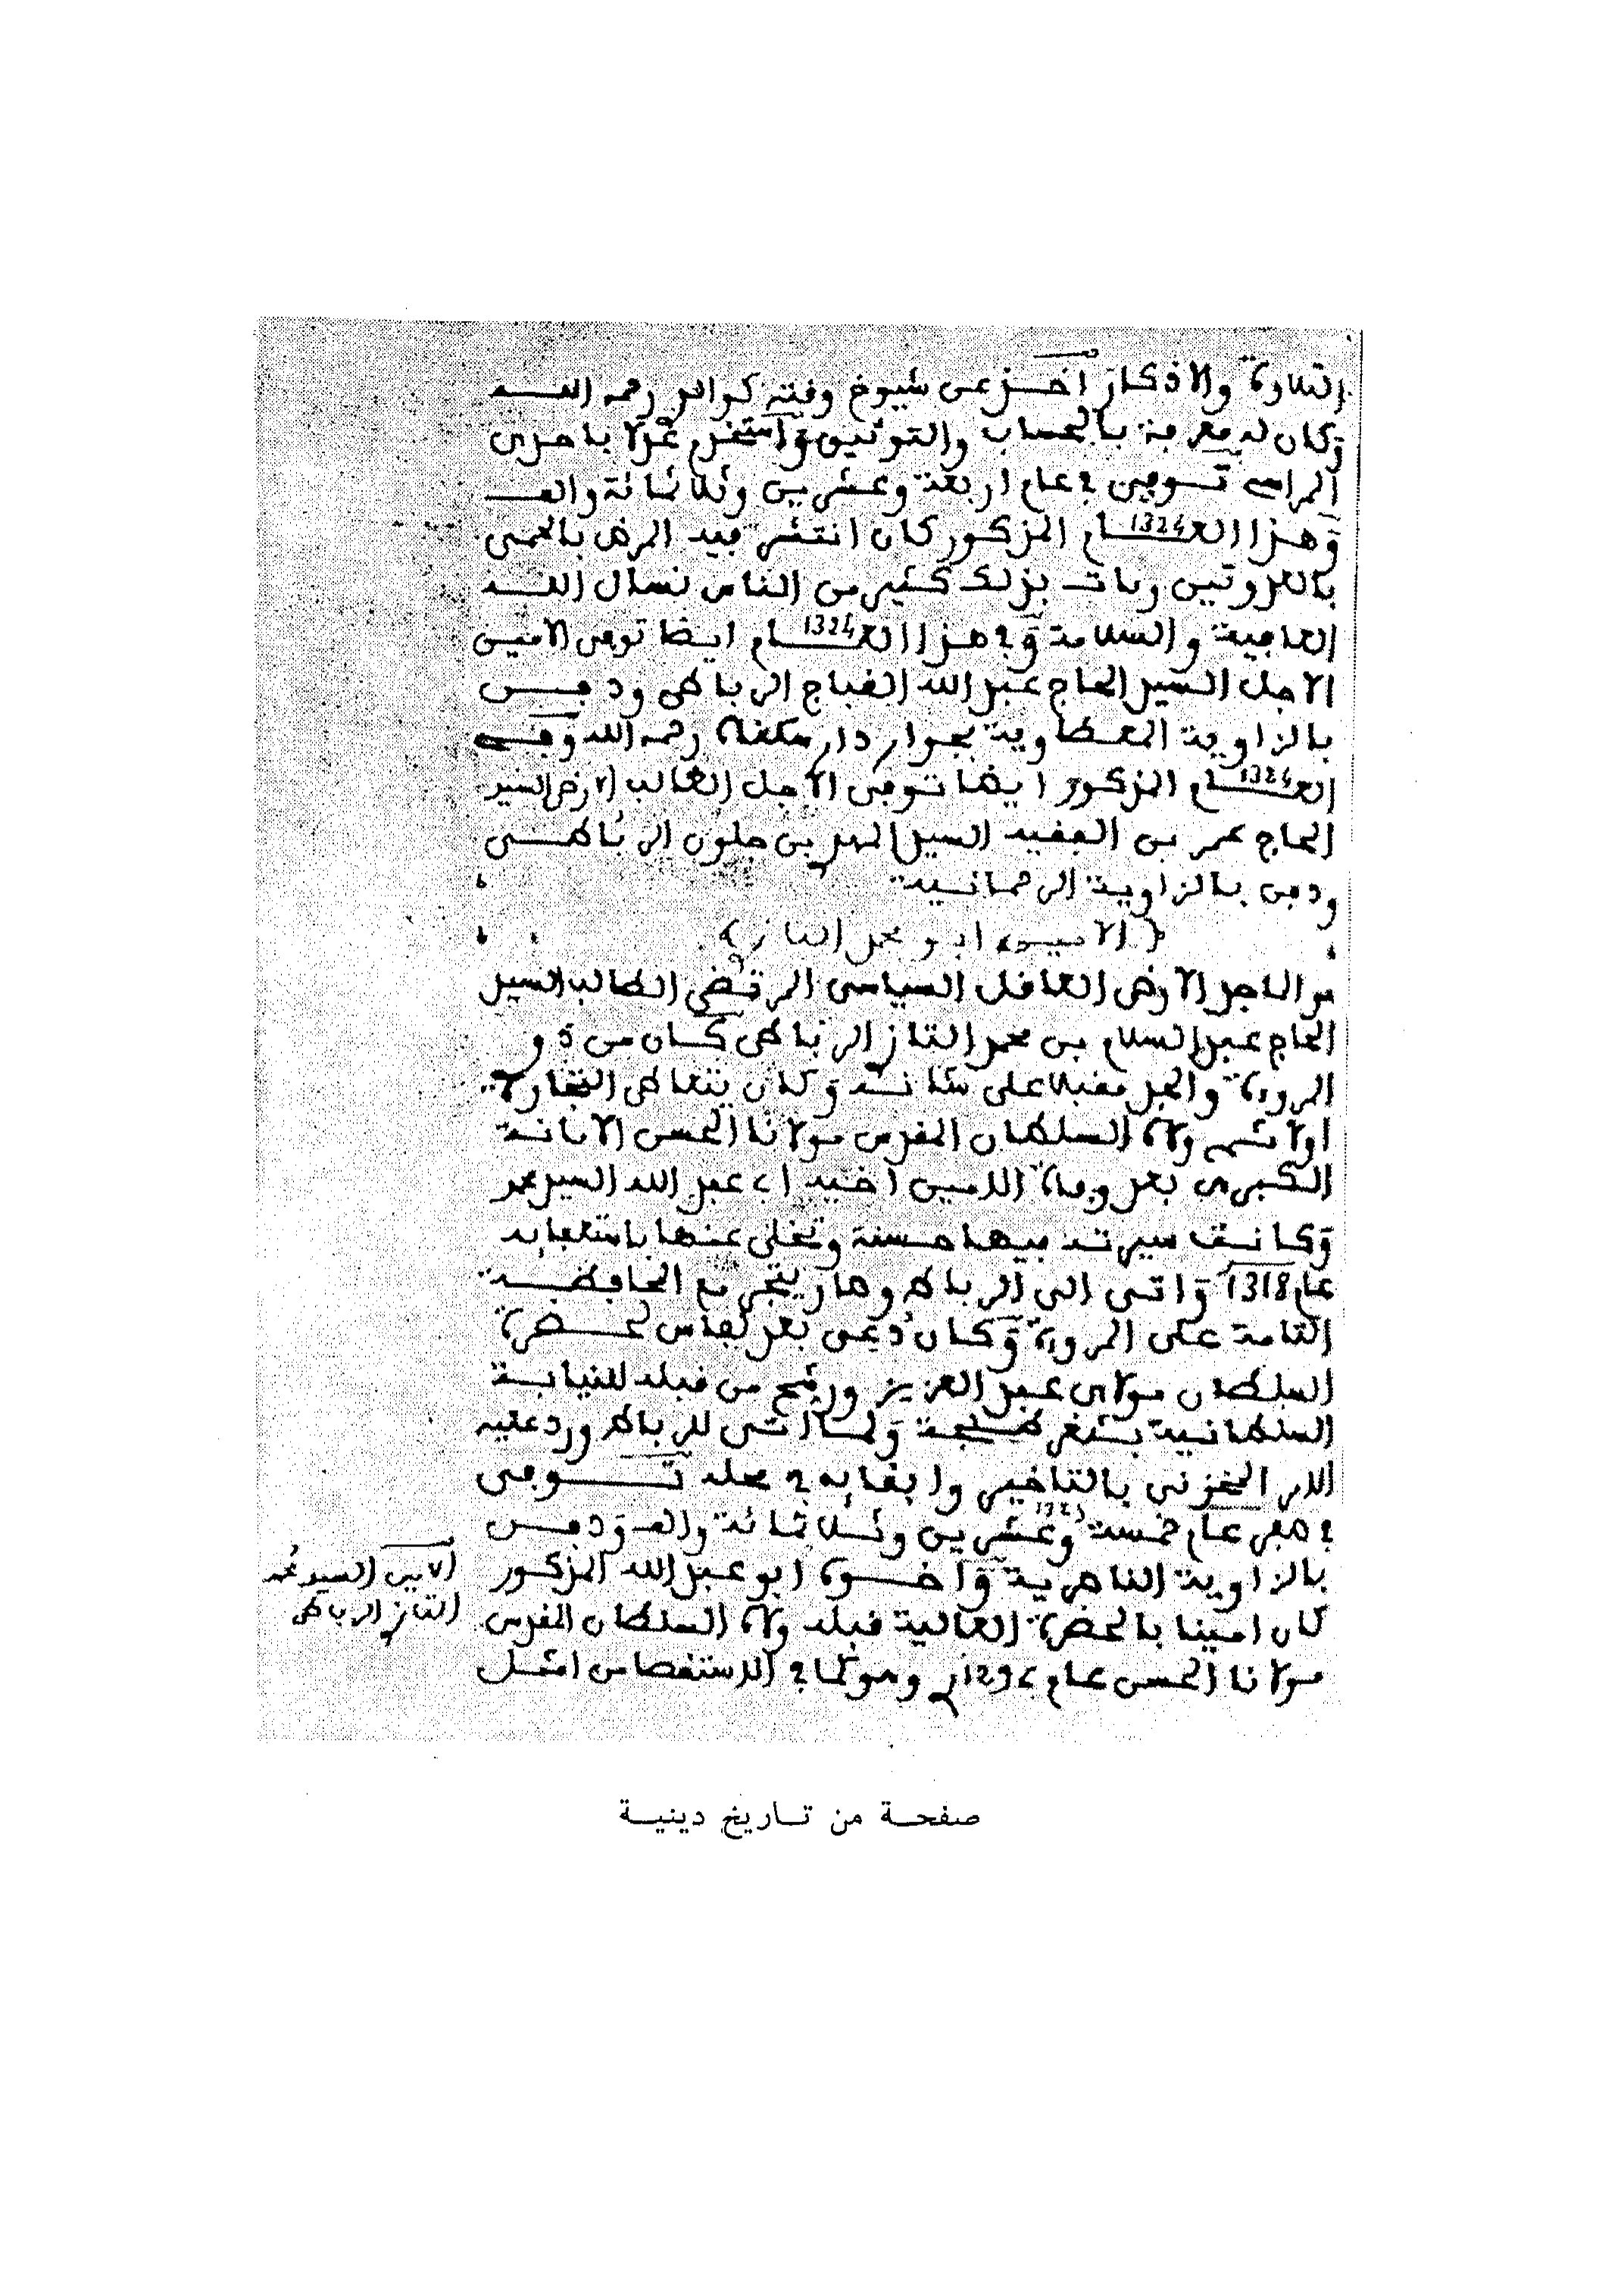 التلاوة والاذكار أخذ عن شيوخ وقته كوالده رحمه الله
وكان له معرفة بالحساب والتوثيق واستخدم عدلا باحدى
المراسي توفي في عام اربعة وعشرين وثلاثمائة والف
وهذا العام 1324 المذكور كان انتشر فيه المرض بالحمى
بالعدوتين ومات بذلك كثير من الناس نسأل الله
العافية والسلامة وفي هذا العام 1324 ايضا توفي الامين
الاجل السيد الحاج عبد الله القباج الرباطي ودفن
بالزاوية المعطاوية بجوار دار سكناه رحمه الله وفي
العام 1324 المذكور ايضا توفي الاجل الطالب الارضى السيد
الحاج عمر بن الفقيه السيد المهدي بن جلون الرباطي
ودفن بالزاوية الرحمانية
(الامين ابو محمد التاز)
هو الماجد الارضى العاقل السياسي المرتضى الطالب السيد
الحاج عبد السلام بن محمد التازي الرباطي كان من ذوي
المروءة والجد مقبلا على شانه وكان يتعاطى التجارة
اولا ثم ولاه السلطان المقدس مولانا الحسن الامانة
الكبرى بعد وفاة الامين اخيه ابي عبد الله السيد محمد
وكانت سيرته فيها حسنة وتخلى عنها باستعفائه
عام 1318 واتى الى الرباط وصار يتجر مع المحافظة
التامة على المروءة وكان دعي بعد لفاس لحضرة
السلطان مولاي عبد العزيز ورشح من قبله للنيابة
السلطانية بثغر طنجة ولما اتى للرباط ورد عليه
الامر المخزني بالتاخير وابقائه في محله توفي
في صفر عام خمسة وعشرين وثلاثمائة والف ودفن
بالزاوية الناصرية واخوه ابو عبد الله المذكور
كان امينا بالحضرة العالية قبله ولاه السلطان المقدس
مولانا الحسن عام 1292 وهو كما في الاستقصا من امثل
الامين السيد محمد
التازي الرباطي
صفحة من تاريخ دينية